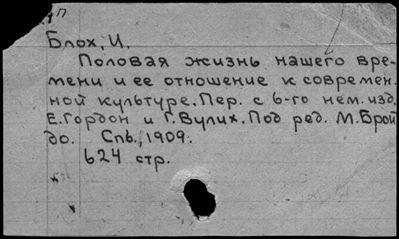 П
Блох, И.
Половая жизнь нашего вре-
мени и ее отношение к современ.
ной культуре. Пер. с 6-го нем. изд.
Е. Гордон и Г. Вулих. Под ред. М. Брой
до. Спб., 1909.
624 стр.